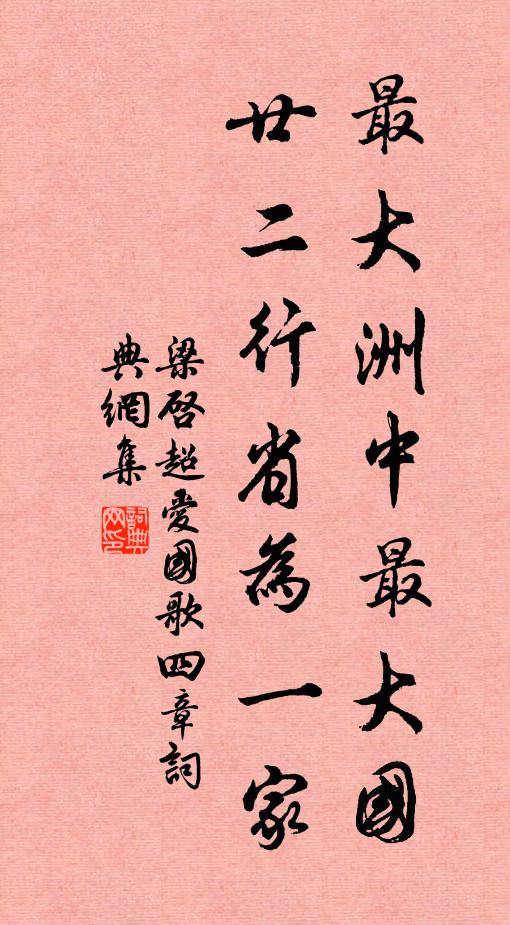 最大洲中最大國
廿二行省為一家
梁啓超愛國歌四章詞
典網集
詞典
网印